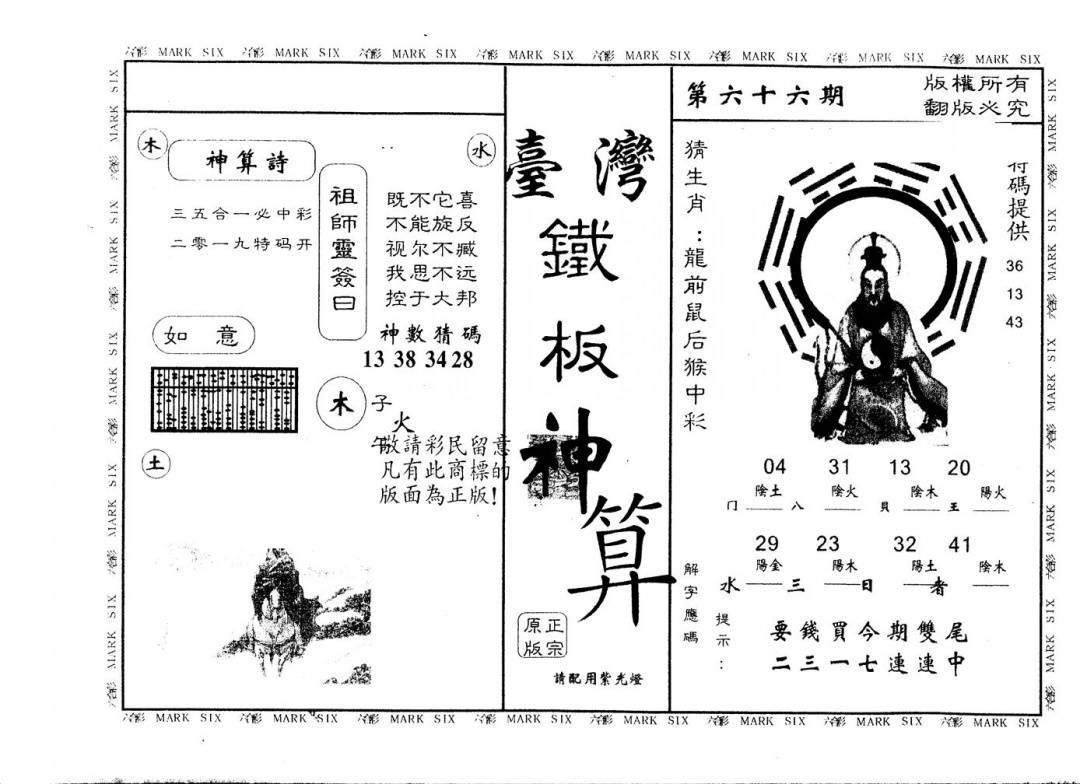 六合彩 MARK SIX 六合彩 MARK SIX 六合彩 MARK SIX 六合彩 MARK SIX 六合彩 MARK SIX 六合彩 MARK SIX 六合彩 MARK SIX 六合彩 MARK SIX
第六十六期
版權所有
翻版必究
猜生肖：龍前鼠后猴中彩
符碼提供
36
13
43
04 31 13 20
陰土 陰火 陰木 陽火
冂 八 貝 王
29 23 32 41
陽金 陽木 陽土 陰木
水 三 日 者
解字應碼
提示：
要錢買今期雙尾
二三一七連連中
臺灣
鐵板神算
正宗
原版
請配用紫光燈
木
神算詩
水
三五合一必中彩
二零一九特码开
祖師靈簽曰
既不它喜
不能旋反
视尔不臧
我思不远
控于大邦
神數猜碼
13 38 34 28
如意
木
子
火
午
敬請彩民留意
凡有此商標的
版面為正版!
土
六合彩 MARK SIX 六合彩 MARK SIX 六合彩 MARK SIX 六合彩 MARK SIX 六合彩 MARK SIX 六合彩 MARK SIX 六合彩 MARK SIX 六合彩 MARK SIX